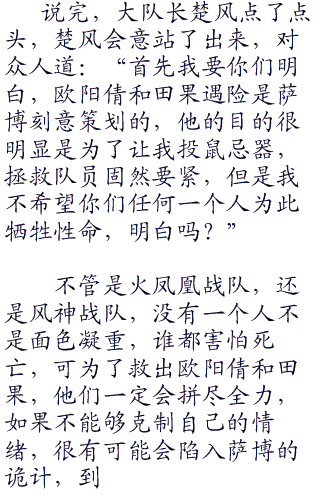 说完，大队长楚风点了点
头，楚风会意站了出来，对
众人道：“首先我要你们明
白，欧阳倩和田果遇险是萨
博刻意策划的，他的目的很
明显是为了让我投鼠忌器，
拯救队员固然要紧，但是我
不希望你们任何一个人为此
牺牲性命，明白吗？”
不管是火凤凰战队，还
是风神战队，没有一个人不
是面色凝重，谁都害怕死
亡，可为了救出欧阳倩和田
果，他们一定会拼尽全力，
如果不能够克制自己的情
绪，很有可能会陷入萨博的
诡计，到